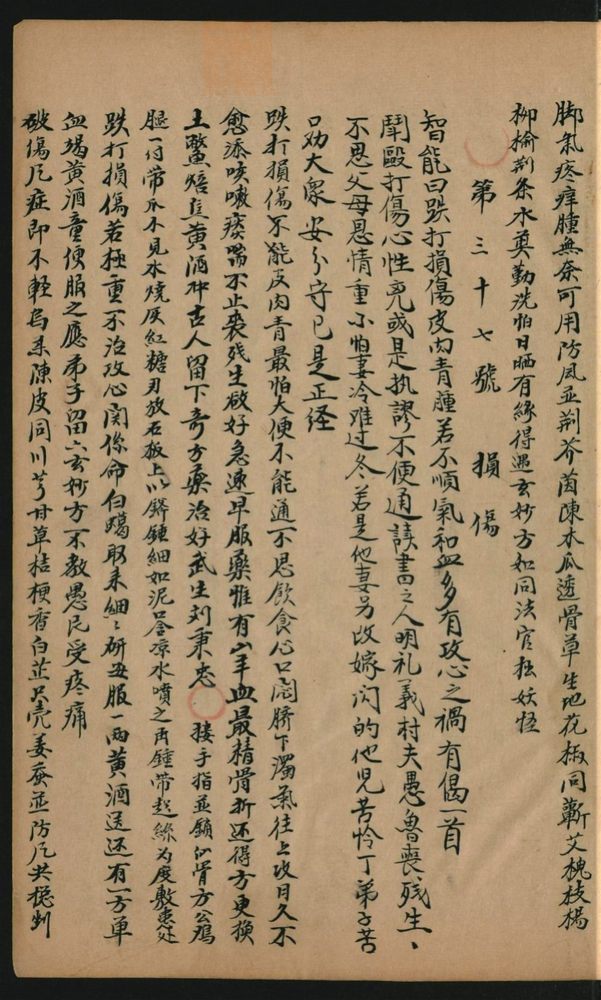 脚氣疼痒腫無奈可用防風並荆芥茵陳木瓜透骨草生地花椒同蘄艾槐枝楊
柳榆荆条水煎勤洗怕日晒有緣得遇玄妙方如同法官拉妖怪
第三十七號　損傷
智能曰跌打損傷皮肉青腫若不順氣和血多有攻心之禍有偈一首
鬪毆打傷心性亮或是执謬不便通讀書之人明礼義村夫愚魯喪残生、
不思父母恩情重不怕妻冷难过冬若是他妻另改嫁闪的他児苦怜丁弟子苦
口劝大衆安分守已是正経
跌打損傷不能皮肉青最怕大便不能通不思飲食心口悶臍下濁氣往上攻日久不
愈添咳嗽痰喘不止丧残生欲好急速早服藥惟有山羊血最精骨折还得方更換
土鱉焙焦黄酒冲古人留下奇方藥治好武生刘秉忠　接手指並鎖仙骨方公鸡
腿一付帶爪不見水燒灰紅糖刃放石板上以鎊錘細如泥口含凉水噴之再錘帶起絲为度敷患处
跌打損傷若極重不治攻心関係命白蠟取来細〻研丑服一両黄酒送还有一方單
血竭黄酒童便服之應弟子留六玄妙方不教愚民受疼痛
破傷凡症即不輕烏系陳皮同川芎甘草桔梗香白芷只壳姜蚕並防凡共桵剉